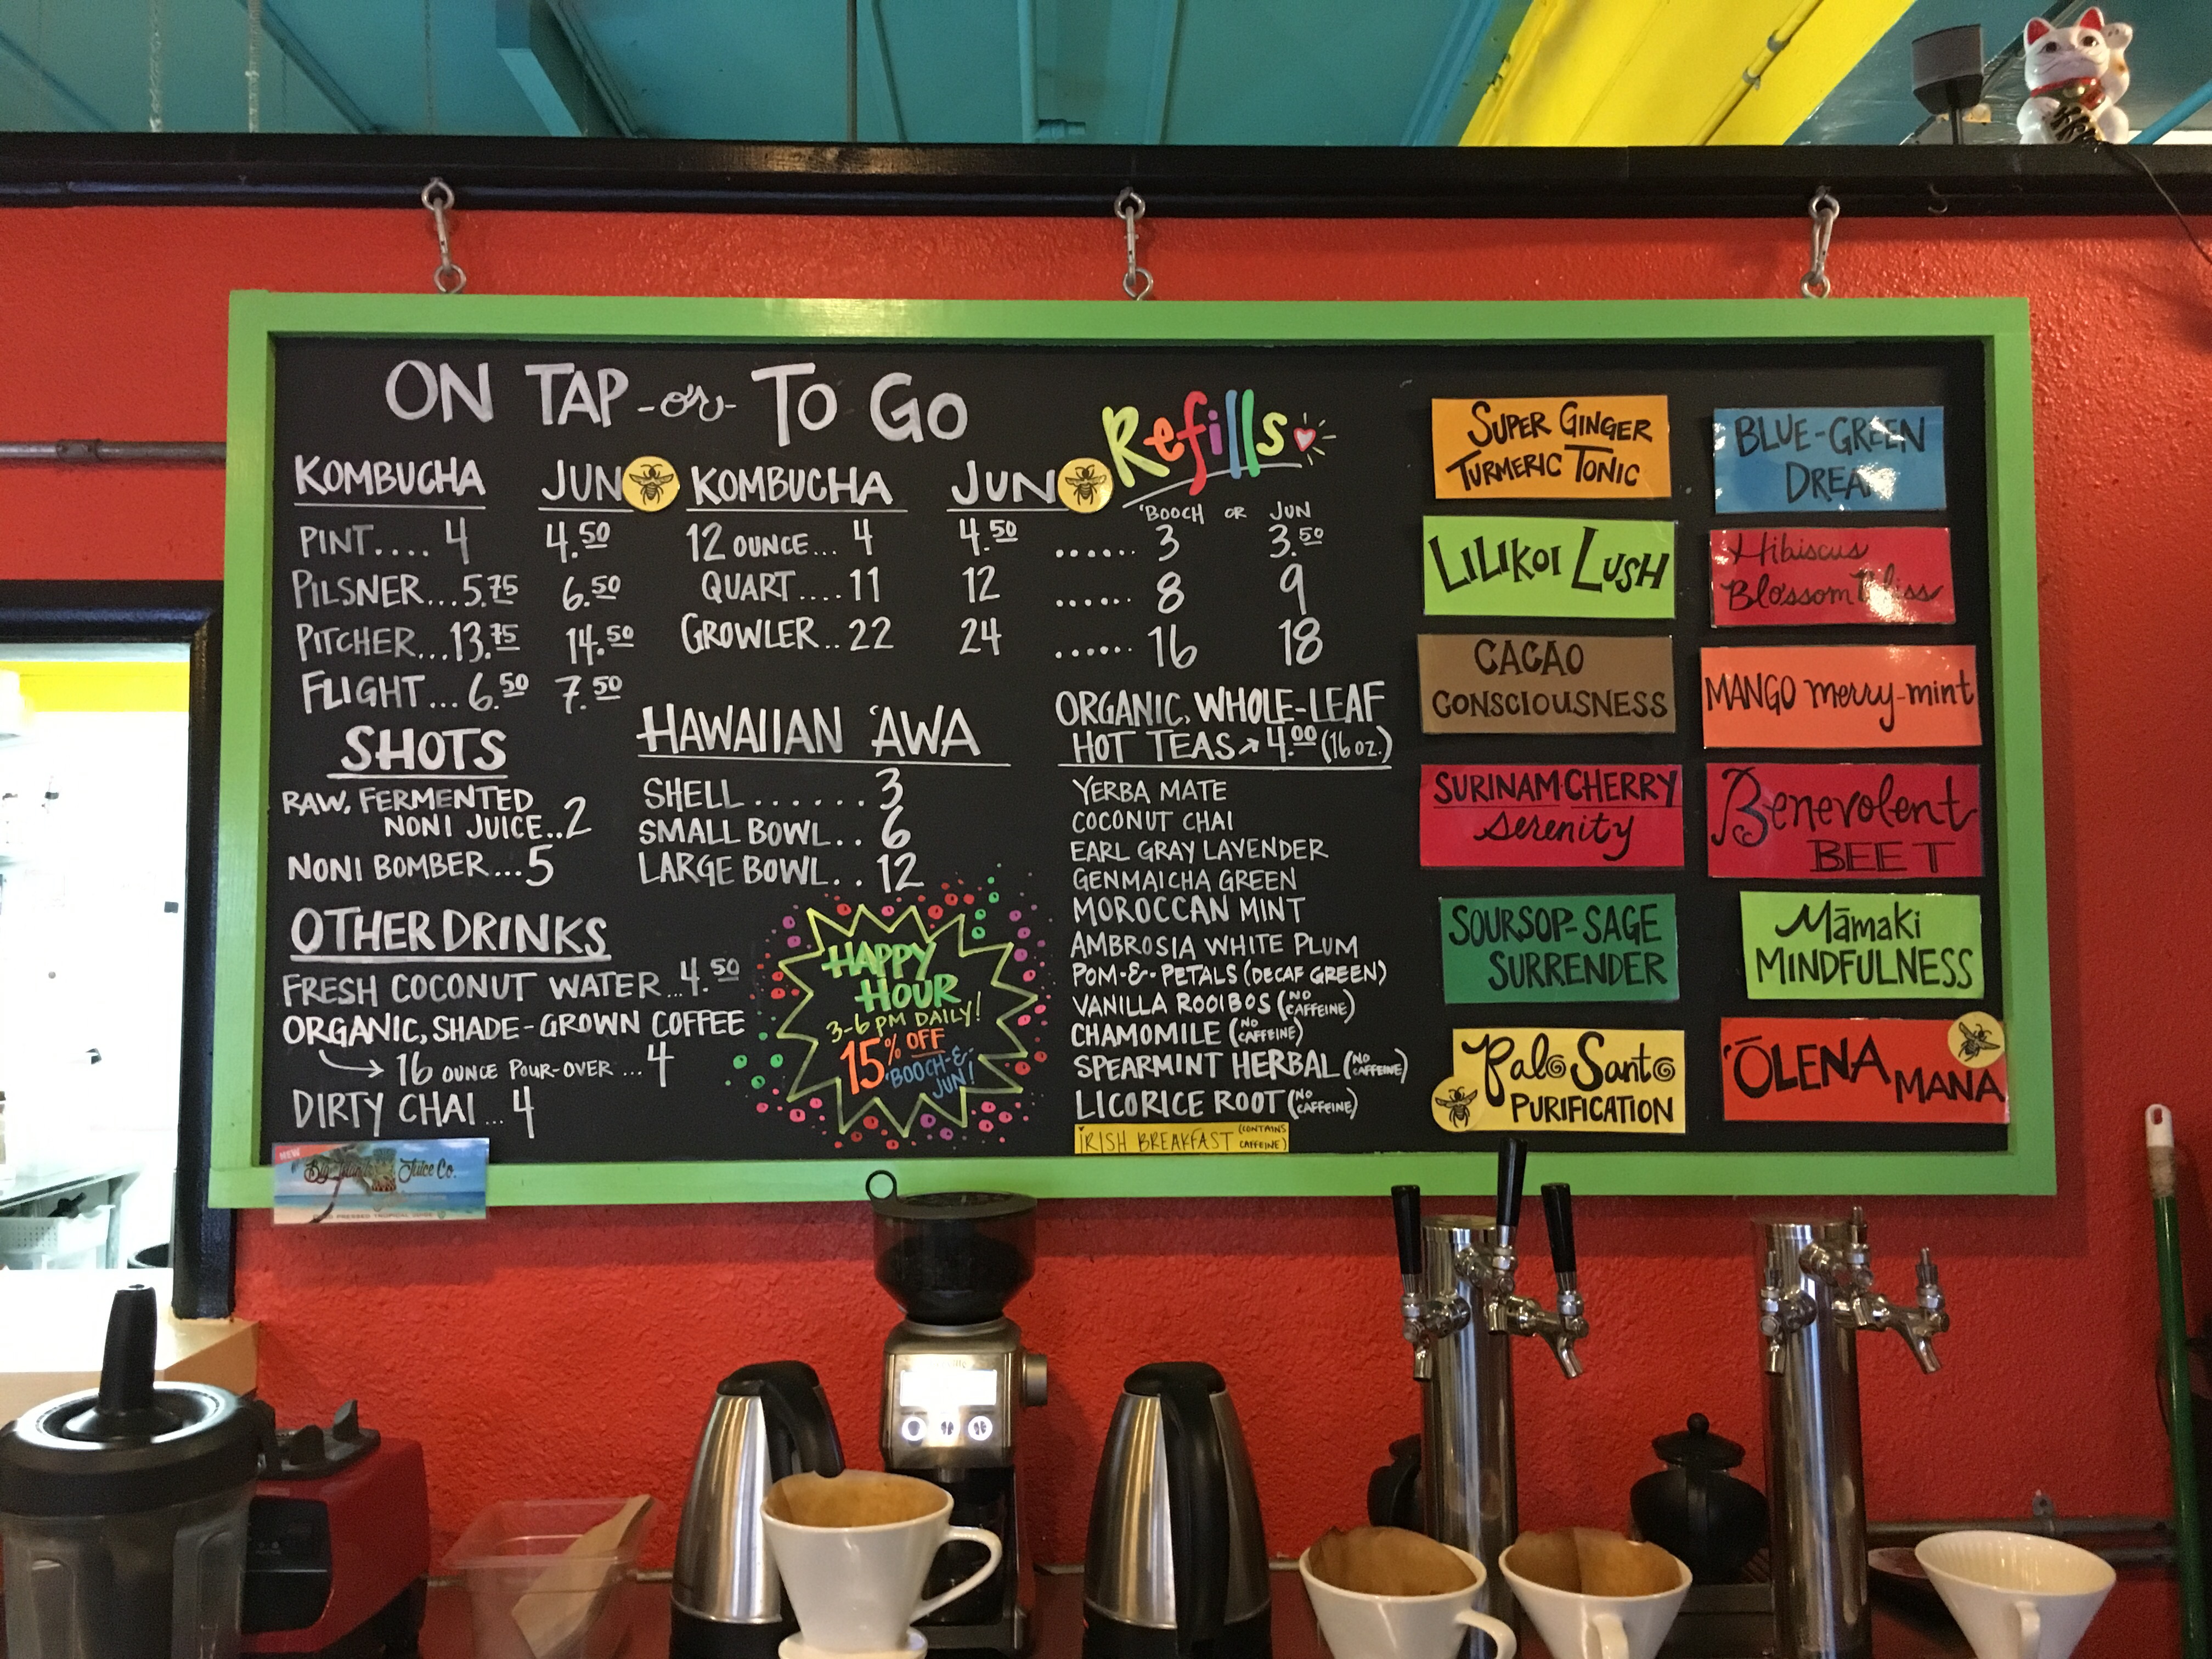 ON TAP -or- TO GO
KOMBUCHA JUN
PINT.... 4 4.50
PILSNER...5.75 6.50
PITCHER...13.75 14.50
FLIGHT...6.50 7.50
KOMBUCHA JUN
12 OUNCE... 4 4.50
QUART....11 12
GROWLER..22 24
Refills
'BOOCH OR JUN
...... 3 3.50
...... 8 9
...... 16 18
SHOTS
RAW, FERMENTED
NONI JUICE..2
NONI BOMBER...5
HAWAIIAN 'AWA
SHELL......3
SMALL BOWL..6
LARGE BOWL..12
OTHER DRINKS
FRESH COCONUT WATER...4.50
ORGANIC, SHADE-GROWN COFFEE
→ 16 OUNCE POUR-OVER ...4
DIRTY CHAI...4
HAPPY
HOUR
3-6 PM DAILY!
15% OFF
'BOOCH-&-
JUN!
ORGANIC, WHOLE-LEAF
HOT TEAS → 4.00 (16 OZ.)
YERBA MATE
COCONUT CHAI
EARL GRAY LAVENDER
GENMAICHA GREEN
MOROCCAN MINT
AMBROSIA WHITE PLUM
POM-&-PETALS (DECAF GREEN)
VANILLA ROOIBOS (NO CAFFEINE)
CHAMOMILE (NO CAFFEINE)
SPEARMINT HERBAL (NO CAFFEINE)
LICORICE ROOT (NO CAFFEINE)
IRISH BREAKFAST (CONTAINS CAFFEINE)
SUPER GINGER
TURMERIC TONIC
LILIKOI LUSH
CACAO
CONSCIOUSNESS
SURINAM CHERRY
Serenity
SOURSOP-SAGE
SURRENDER
Palo Santo
PURIFICATION
BLUE-GREEN
DREAM
Hibiscus
Blossom Bliss
MANGO merry-mint
Benevolent
BEET
Māmaki
MINDFULNESS
'ŌLENA MANA
NEW
Big Island Juice Co.